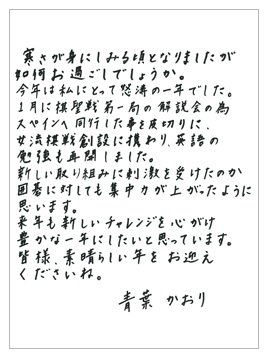 寒さが身にしみる頃となりましたが
如何お過ごしでしょうか。
今年は私にとって怒涛の一年でした。
1月に棋聖戦第一局の解説会の為
スペインへ同行した事を皮切りに、
女流棋戦創設に携わり、英語の
勉強も再開しました。
新しい取り組みに刺激を受けたのか
囲碁に対しても集中力が上がったように
思います。
来年も新しいチャレンジを心がけ
豊かな一年にしたいと思っています。
皆様、素晴らしい年をお迎え
くださいね。
青葉 かおり